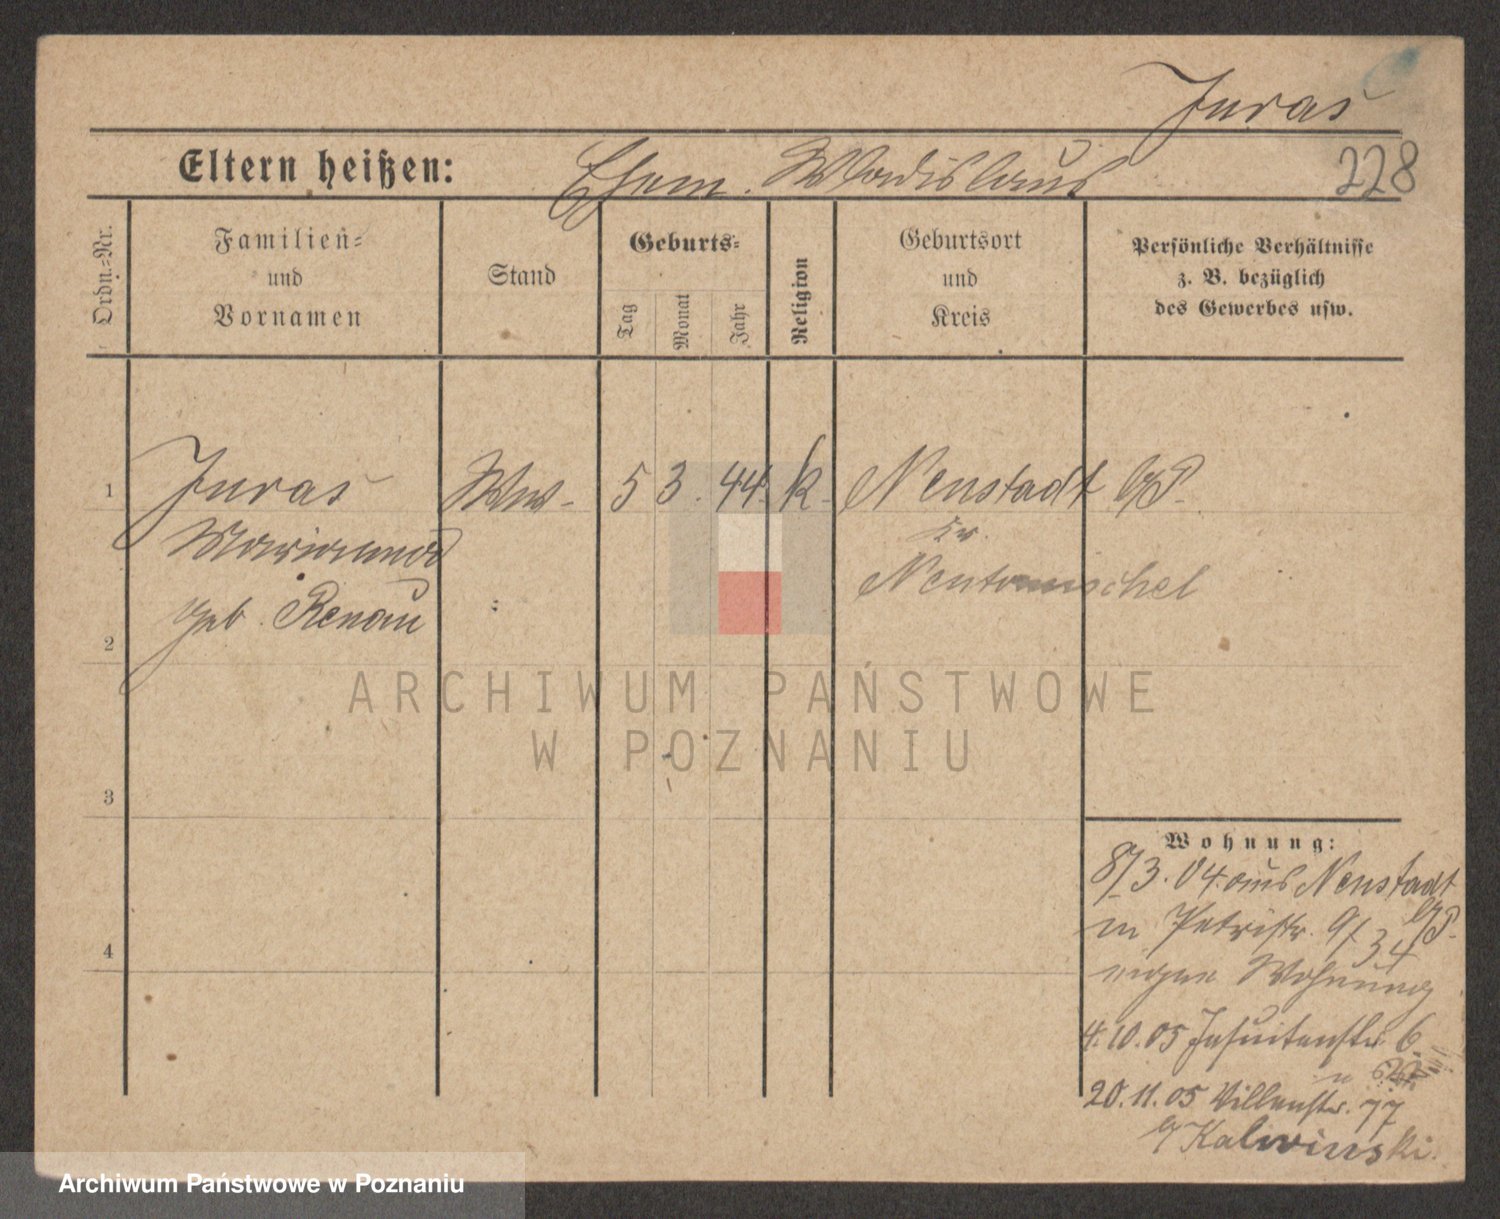 Juras
Eltern heißen: Ehem. Wladislaus 228
Ordn.-Nr.
Familien-
und
Vornamen
Stand
Geburts-
Tag Monat Jahr
Religion
Geburtsort
und
Kreis
Persönliche Verhältnisse
z. B. bezüglich
des Gewerbes usw.
1 Juras Ww. 5 3. 44. k. Neustadt b/P.
Marianna Kr.
Neutomischel
2 geb. Renau
ARCHIWUM PAŃSTWOWE
W POZNANIU
3
Wohnung:
8/3. 04. aus Neustadt
b/P.
in Petristr. 9/34
4
eigne Wohnung
4.10.05 Jesuitenstr. 6.
20.11.05 Villenstr. 77
b/ Kalwinski.
Archiwum Państwowe w Poznaniu